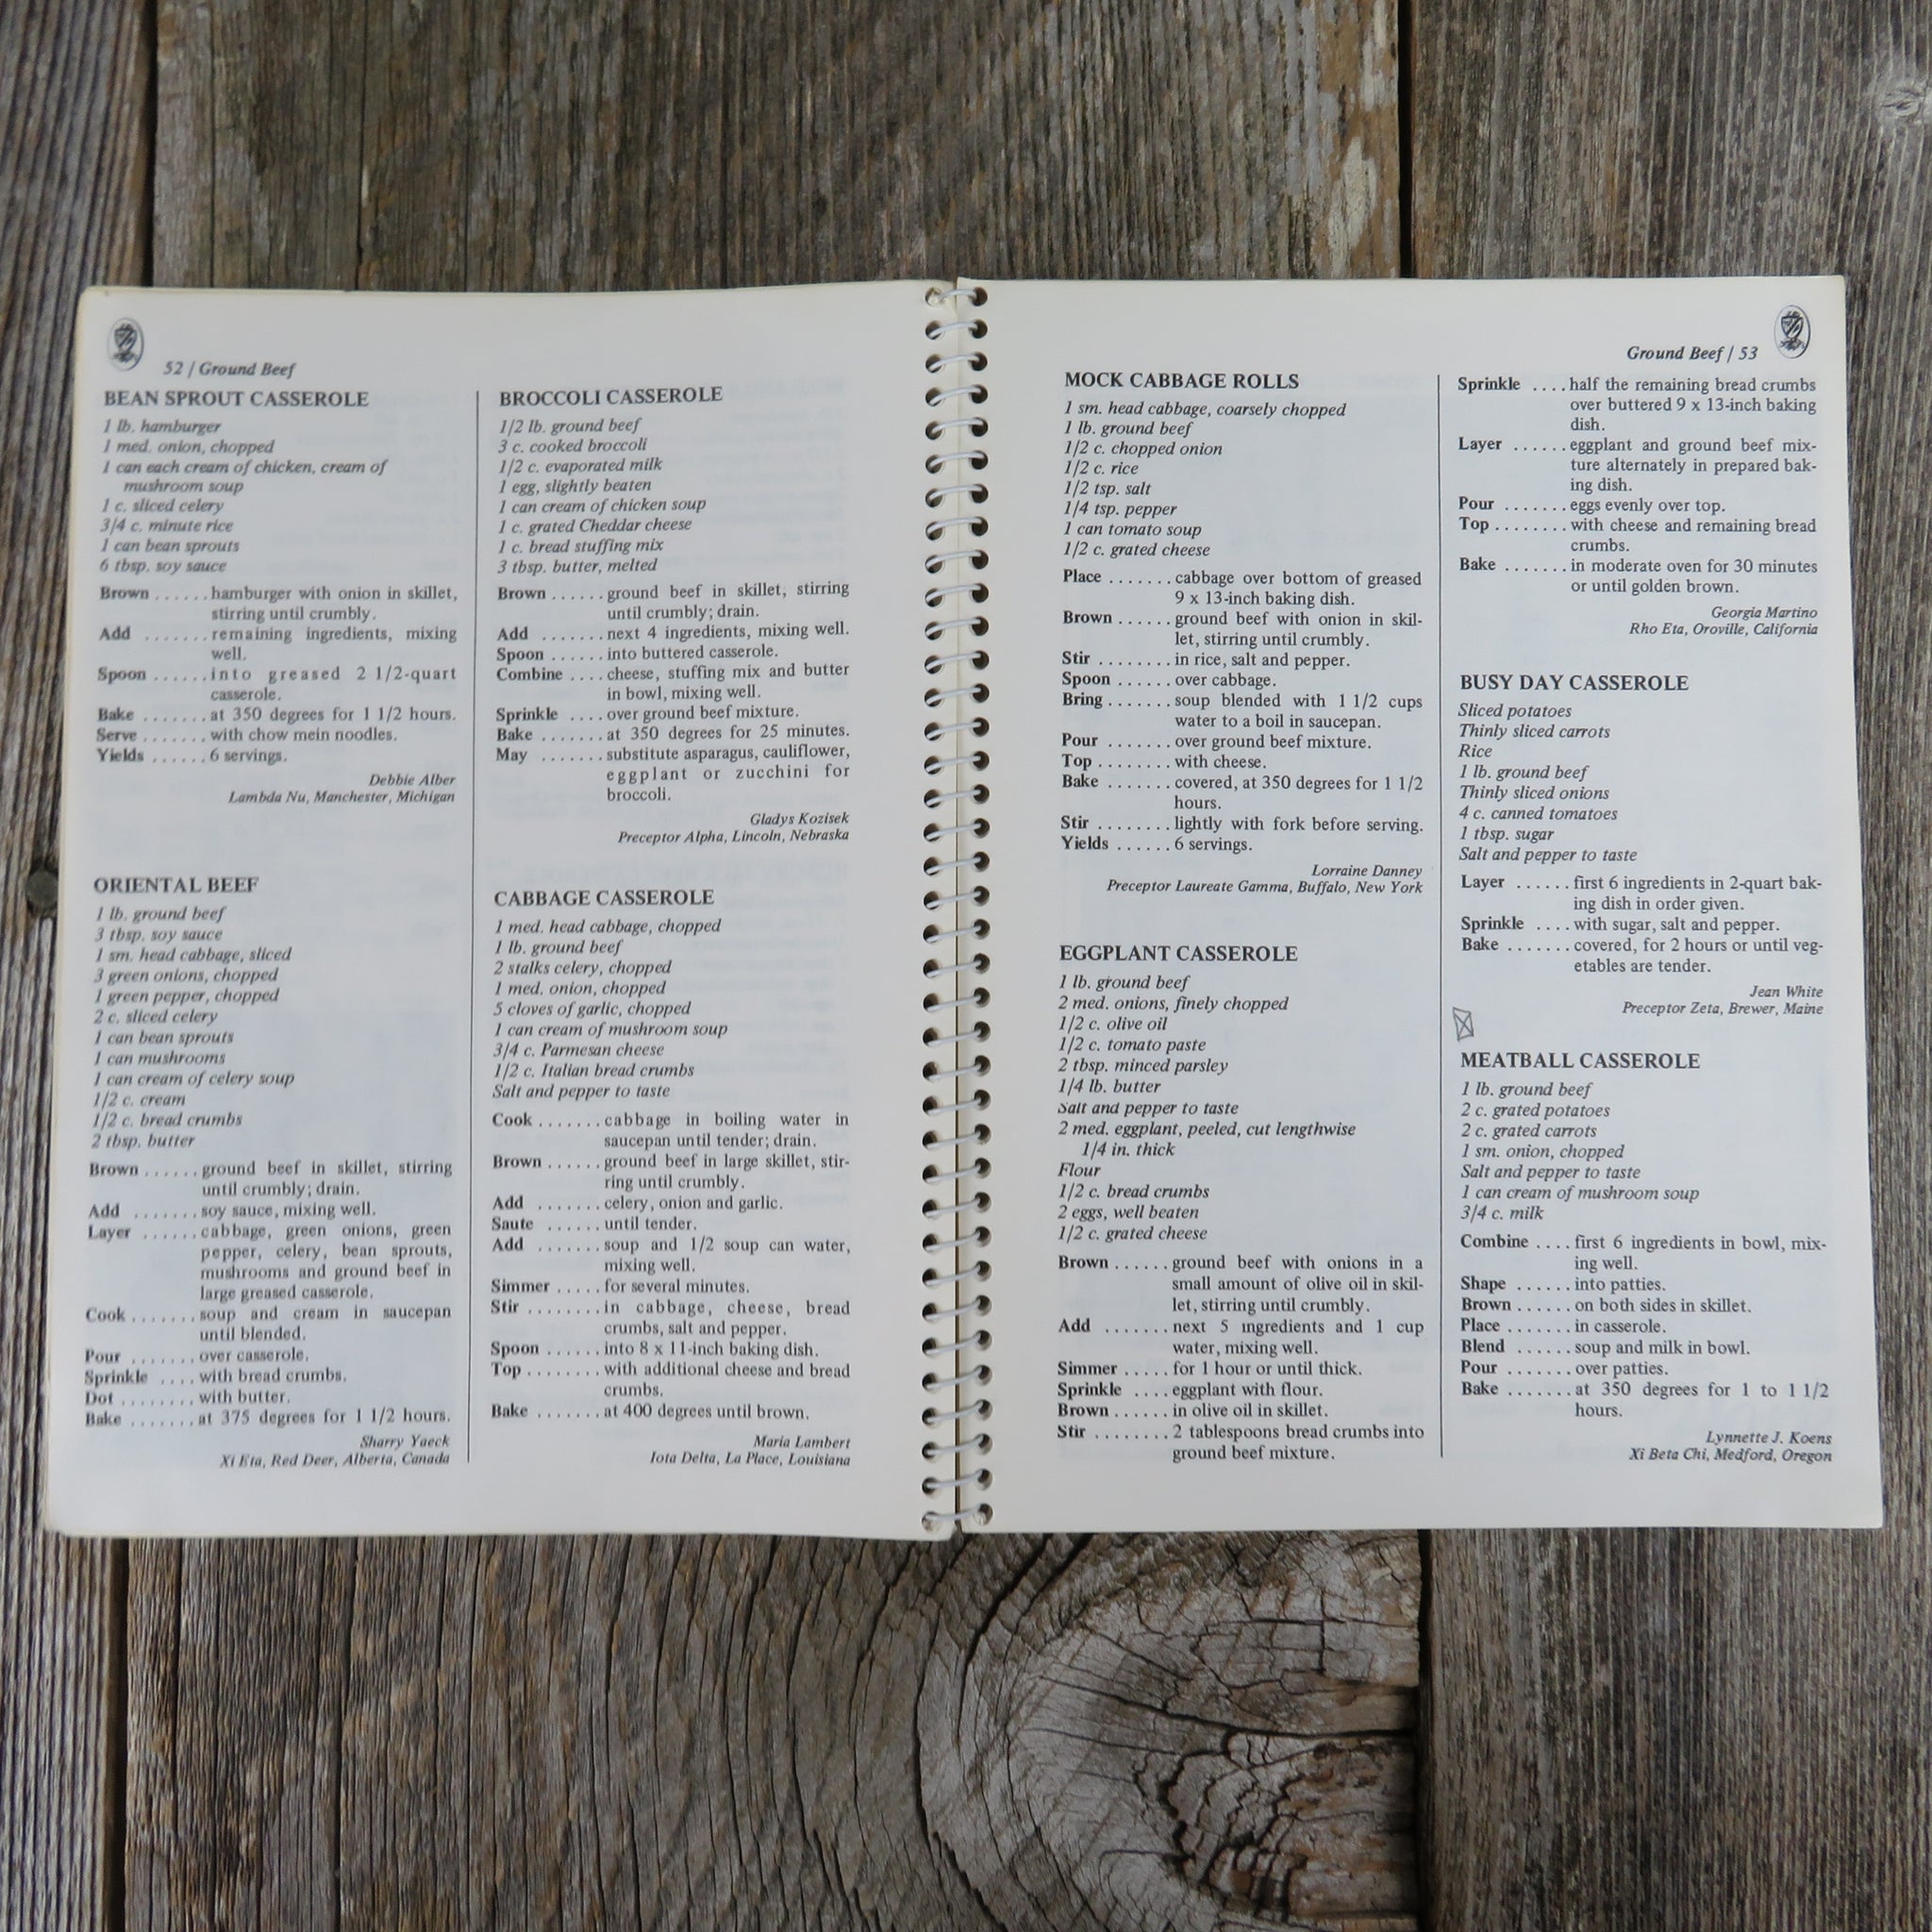 52 / Ground Beef
BEAN SPROUT CASSEROLE
1 lb. hamburger
1 med. onion, chopped
1 can each cream of chicken, cream of
mushroom soup
1 c. sliced celery
3/4 c. minute rice
1 can bean sprouts
6 tbsp. soy sauce
Brown ...... hamburger with onion in skillet,
stirring until crumbly.
Add ....... remaining ingredients, mixing
well.
Spoon ...... into greased 2 1/2-quart
casserole.
Bake ....... at 350 degrees for 1 1/2 hours.
Serve ....... with chow mein noodles.
Yields ...... 6 servings.
Debbie Alber
Lambda Nu, Manchester, Michigan
ORIENTAL BEEF
1 lb. ground beef
3 tbsp. soy sauce
1 sm. head cabbage, sliced
3 green onions, chopped
1 green pepper, chopped
2 c. sliced celery
1 can bean sprouts
1 can mushrooms
1 can cream of celery soup
1/2 c. cream
1/2 c. bread crumbs
2 tbsp. butter
Brown ...... ground beef in skillet, stirring
until crumbly; drain.
Add ....... soy sauce, mixing well.
Layer ...... cabbage, green onions, green
pepper, celery, bean sprouts,
mushrooms and ground beef in
large greased casserole.
Cook ....... soup and cream in saucepan
until blended.
Pour ....... over casserole.
Sprinkle .... with bread crumbs.
Dot ........ with butter.
Bake ....... at 375 degrees for 1 1/2 hours.
Sharry Yaeck
Xi Eta, Red Deer, Alberta, Canada
BROCCOLI CASSEROLE
1/2 lb. ground beef
3 c. cooked broccoli
1/2 c. evaporated milk
1 egg, slightly beaten
1 can cream of chicken soup
1 c. grated Cheddar cheese
1 c. bread stuffing mix
3 tbsp. butter, melted
Brown ...... ground beef in skillet, stirring
until crumbly; drain.
Add ....... next 4 ingredients, mixing well.
Spoon ...... into buttered casserole.
Combine .... cheese, stuffing mix and butter
in bowl, mixing well.
Sprinkle .... over ground beef mixture.
Bake ....... at 350 degrees for 25 minutes.
May ....... substitute asparagus, cauliflower,
eggplant or zucchini for
broccoli.
Gladys Kozisek
Preceptor Alpha, Lincoln, Nebraska
CABBAGE CASSEROLE
1 med. head cabbage, chopped
1 lb. ground beef
2 stalks celery, chopped
1 med. onion, chopped
5 cloves of garlic, chopped
1 can cream of mushroom soup
3/4 c. Parmesan cheese
1/2 c. Italian bread crumbs
Salt and pepper to taste
Cook ....... cabbage in boiling water in
saucepan until tender; drain.
Brown ...... ground beef in large skillet, stir-
ring until crumbly.
Add ....... celery, onion and garlic.
Saute ...... until tender.
Add ....... soup and 1/2 soup can water,
mixing well.
Simmer ..... for several minutes.
Stir ........ in cabbage, cheese, bread
crumbs, salt and pepper.
Spoon ...... into 8 x 11-inch baking dish.
Top ........ with additional cheese and bread
crumbs.
Bake ....... at 400 degrees until brown.
Maria Lambert
Iota Delta, La Place, Louisiana
Ground Beef / 53
MOCK CABBAGE ROLLS
1 sm. head cabbage, coarsely chopped
1 lb. ground beef
1/2 c. chopped onion
1/2 c. rice
1/2 tsp. salt
1/4 tsp. pepper
1 can tomato soup
1/2 c. grated cheese
Place ....... cabbage over bottom of greased
9 x 13-inch baking dish.
Brown ...... ground beef with onion in skil-
let, stirring until crumbly.
Stir ........ in rice, salt and pepper.
Spoon ...... over cabbage.
Bring ....... soup blended with 1 1/2 cups
water to a boil in saucepan.
Pour ....... over ground beef mixture.
Top ........ with cheese.
Bake ....... covered, at 350 degrees for 1 1/2
hours.
Stir ........ lightly with fork before serving.
Yields ...... 6 servings.
Lorraine Danney
Preceptor Laureate Gamma, Buffalo, New York
EGGPLANT CASSEROLE
1 lb. ground beef
2 med. onions, finely chopped
1/2 c. olive oil
1/2 c. tomato paste
2 tbsp. minced parsley
1/4 lb. butter
Salt and pepper to taste
2 med. eggplant, peeled, cut lengthwise
1/4 in. thick
Flour
1/2 c. bread crumbs
2 eggs, well beaten
1/2 c. grated cheese
Brown ...... ground beef with onions in a
small amount of olive oil in skil-
let, stirring until crumbly.
Add ....... next 5 ingredients and 1 cup
water, mixing well.
Simmer ..... for 1 hour or until thick.
Sprinkle .... eggplant with flour.
Brown ...... in olive oil in skillet.
Stir ........ 2 tablespoons bread crumbs into
ground beef mixture.
Sprinkle .... half the remaining bread crumbs
over buttered 9 x 13-inch baking
dish.
Layer ...... eggplant and ground beef mix-
ture alternately in prepared bak-
ing dish.
Pour ....... eggs evenly over top.
Top ........ with cheese and remaining bread
crumbs.
Bake ....... in moderate oven for 30 minutes
or until golden brown.
Georgia Martino
Rho Eta, Oroville, California
BUSY DAY CASSEROLE
Sliced potatoes
Thinly sliced carrots
Rice
1 lb. ground beef
Thinly sliced onions
4 c. canned tomatoes
1 tbsp. sugar
Salt and pepper to taste
Layer ...... first 6 ingredients in 2-quart bak-
ing dish in order given.
Sprinkle .... with sugar, salt and pepper.
Bake ....... covered, for 2 hours or until veg-
etables are tender.
Jean White
Preceptor Zeta, Brewer, Maine
MEATBALL CASSEROLE
1 lb. ground beef
2 c. grated potatoes
2 c. grated carrots
1 sm. onion, chopped
Salt and pepper to taste
1 can cream of mushroom soup
3/4 c. milk
Combine .... first 6 ingredients in bowl, mix-
ing well.
Shape ...... into patties.
Brown ...... on both sides in skillet.
Place ....... in casserole.
Blend ...... soup and milk in bowl.
Pour ....... over patties.
Bake ....... at 350 degrees for 1 to 1 1/2
hours.
Lynnette J. Koens
Xi Beta Chi, Medford, Oregon